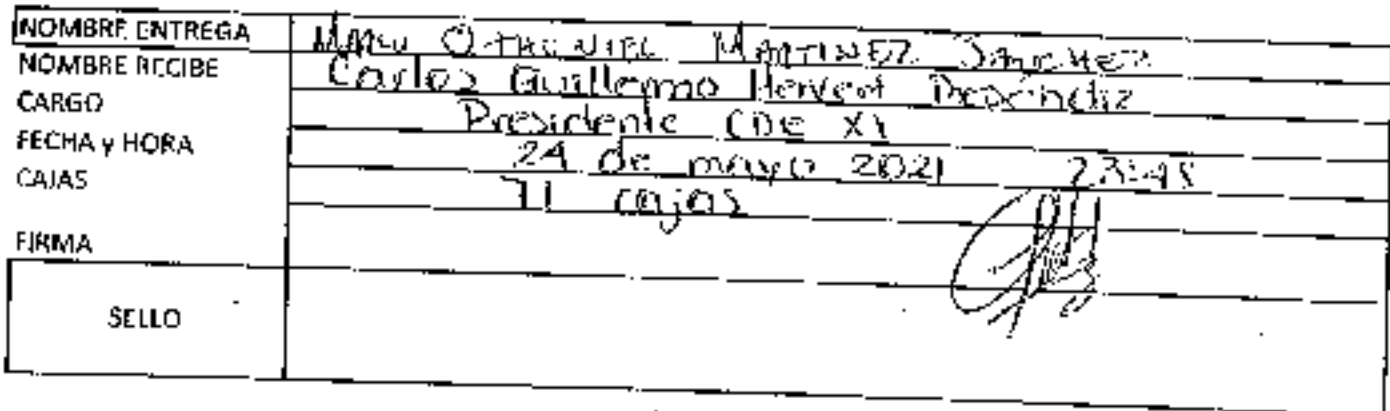 NOMBRE ENTREGA MARTINEZ SANCHEZ
NOMBRE RECIBE Carlos Guillermo
CARGO Presidente CDE XI
FECHA y HORA 24 de mayo 2021 23:48
CAJAS 71 cajas
FIRMA
SELLO